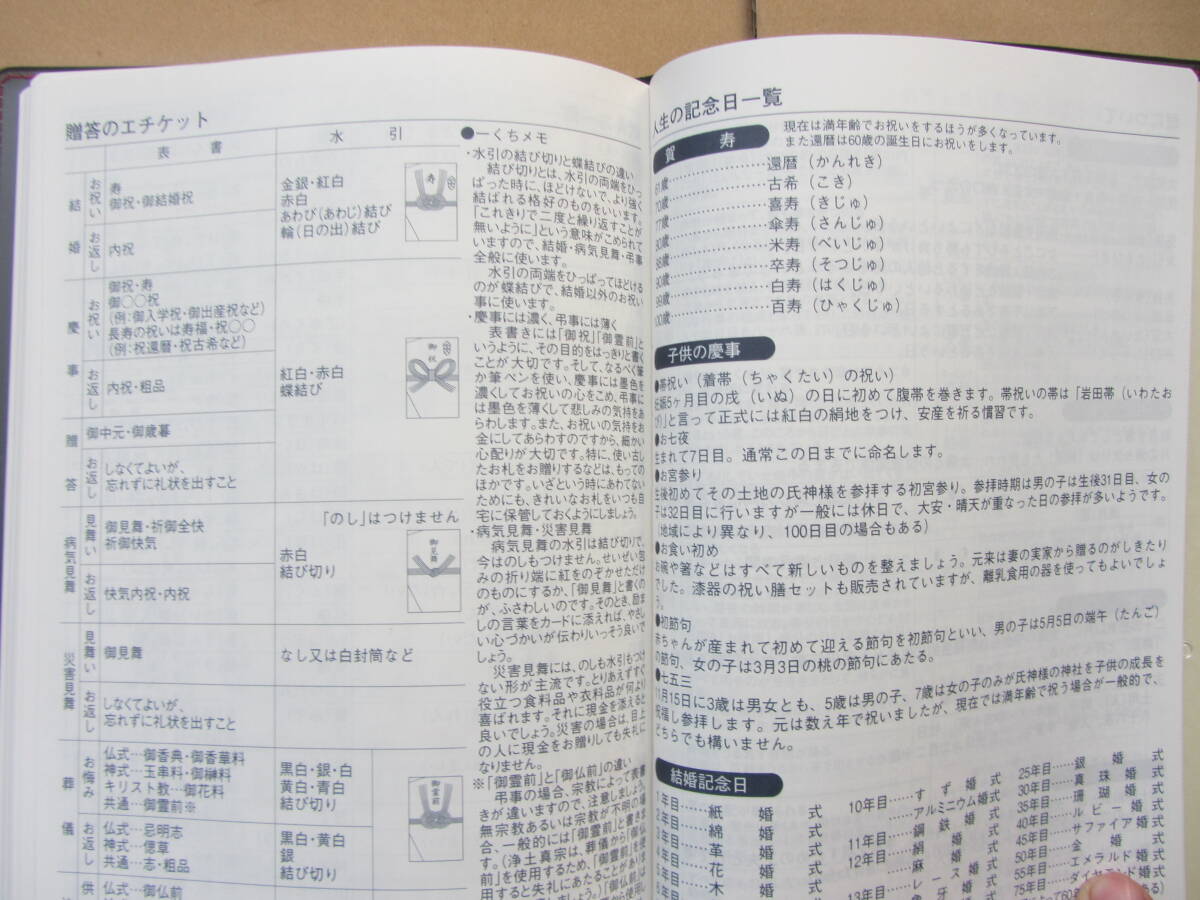 贈答のエチケット
表　書
水　引
結婚
お祝い
寿
御祝・御結婚祝
金銀・紅白
赤白
あわび(あわじ)結び
輪(日の出)結び
寿
お返し
内祝
慶事
お祝い
御祝・寿
御〇〇祝
(例:御入学祝・御出産祝など)
長寿の祝いは寿福・祝〇〇
(例:祝還暦・祝古希など)
お返し
内祝・粗品
紅白・赤白
蝶結び
御祝
贈答
御中元・御歳暮
お返し
しなくてよいが、
忘れずに礼状を出すこと
病気見舞
見舞い
御見舞・祈御全快
祈御快気
「のし」はつけません
赤白
結び切り
御見舞
お返し
快気内祝・内祝
災害見舞
見舞い
御見舞
なし又は白封筒など
お返し
しなくてよいが、
忘れずに礼状を出すこと
葬儀
お悔み
仏式…御香典・御香華料
神式…玉串料・御榊料
キリスト教…御花料
共通…御霊前※
黒白・銀・白
黄白・青白
結び切り
御霊前
お返し
仏式…忌明志
神式…偲草
共通…志・粗品
黒白・黄白
銀
結び切り
供
仏式…御仏前
●一くちメモ
・水引の結び切りと蝶結びの違い
結び切りとは、水引の両端をひっ
ぱった時に、ほどけないで、より強く
結ばれる格好のものをいいます。
「これきりで二度と繰り返すことが
無いように」という意味がこめられて
いますので、結婚・病気見舞・弔事
全般に使います。
水引の両端をひっぱってほどける
のが蝶結びで、結婚以外のお祝い
事に使います。
・慶事には濃く、弔事には薄く
表書きには「御祝」「御霊前」と
いうように、その目的をはっきりと書く
ことが大切です。そして、なるべく筆
か筆ペンを使い、慶事には墨色を
濃くしてお祝いの心をこめ、弔事に
は墨色を薄くして悲しみの気持をあ
らわします。また、お祝いの気持をお
金にしてあらわすのですから、細かい
心配りが大切です。特に、使い古し
たお札をお贈りするなどは、もっての
ほかです。いざという時にあわてない
ためにも、きれいなお札をいつも自
宅に保管しておくようにしましょう。
・病気見舞・災害見舞
病気見舞の水引は結び切りで、
今はのしもつけません。せいぜい包
みの折り端に紅をのぞかせただけ
のものにするか、「御見舞」と書くの
が、ふさわしいのです。そのとき、励ま
しの言葉をカードに添えれば、やさし
い心づかいが伝わりいっそう良いで
しょう。
災害見舞には、のしも水引もつけ
ない形が主流です。とりあえずすぐ
役立つ食料品や衣料品が何より
喜ばれます。それに現金を添えると
良いでしょう。災害の場合は、目上
の人に現金をお贈りしても失礼に
なりません。
※「御霊前」と「御仏前」の違い
弔事の場合、宗教によって表書
きが違いますので、注意しましょう。
無宗教あるいは宗教が不明の場
合、一般的には「御霊前」と書きま
す。(浄土真宗は、葬儀から「御仏
前」を使用するため、「御霊前」を使
用すると失礼にあたることがありま
人生の記念日一覧
賀　寿
現在は満年齢でお祝いをするほうが多くなっています。
また還暦は60歳の誕生日にお祝いをします。
61歳……………………還暦(かんれき)
70歳……………………古希(こき)
77歳……………………喜寿(きじゅ)
80歳……………………傘寿(さんじゅ)
88歳……………………米寿(べいじゅ)
90歳……………………卒寿(そつじゅ)
99歳……………………白寿(はくじゅ)
100歳……………………百寿(ひゃくじゅ)
子供の慶事
●帯祝い(着帯(ちゃくたい)の祝い)
妊娠5ヶ月目の戌(いぬ)の日に初めて腹帯を巻きます。帯祝いの帯は「岩田帯(いわたお
び)」と言って正式には紅白の絹地をつけ、安産を祈る慣習です。
●お七夜
生まれて7日目。通常この日までに命名します。
●お宮参り
生後初めてその土地の氏神様を参拝する初宮参り。参拝時期は男の子は生後31日目、女の
子は32日目に行いますが一般には休日で、大安・晴天が重なった日の参拝が多いようです。
(地域により異なり、100日目の場合もある)
●お食い初め
お椀や箸などはすべて新しいものを整えましょう。元来は妻の実家から贈るのがしきたり
でした。漆器の祝い膳セットも販売されていますが、離乳食用の器を使ってもよいでしょ
う。
●初節句
赤ちゃんが産まれて初めて迎える節句を初節句といい、男の子は5月5日の端午(たんご)
の節句、女の子は3月3日の桃の節句にあたる。
●七五三
11月15日に3歳は男女とも、5歳は男の子、7歳は女の子のみが氏神様の神社を子供の成長を
祝福し参拝します。元は数え年で祝いましたが、現在では満年齢で祝う場合が一般的で、
どちらでも構いません。
結婚記念日
1年目……紙婚式
2年目……綿婚式
3年目……革婚式
4年目……花婚式
5年目……木婚式
10年目……すず婚式
アルミニウム婚式
11年目……鋼鉄婚式
12年目……絹婚式
麻婚式
13年目……レース婚式
25年目……銀婚式
30年目……真珠婚式
35年目……珊瑚婚式
40年目……ルビー婚式
45年目……サファイア婚式
50年目……金婚式
55年目……エメラルド婚式
75年目……ダイヤモンド婚式